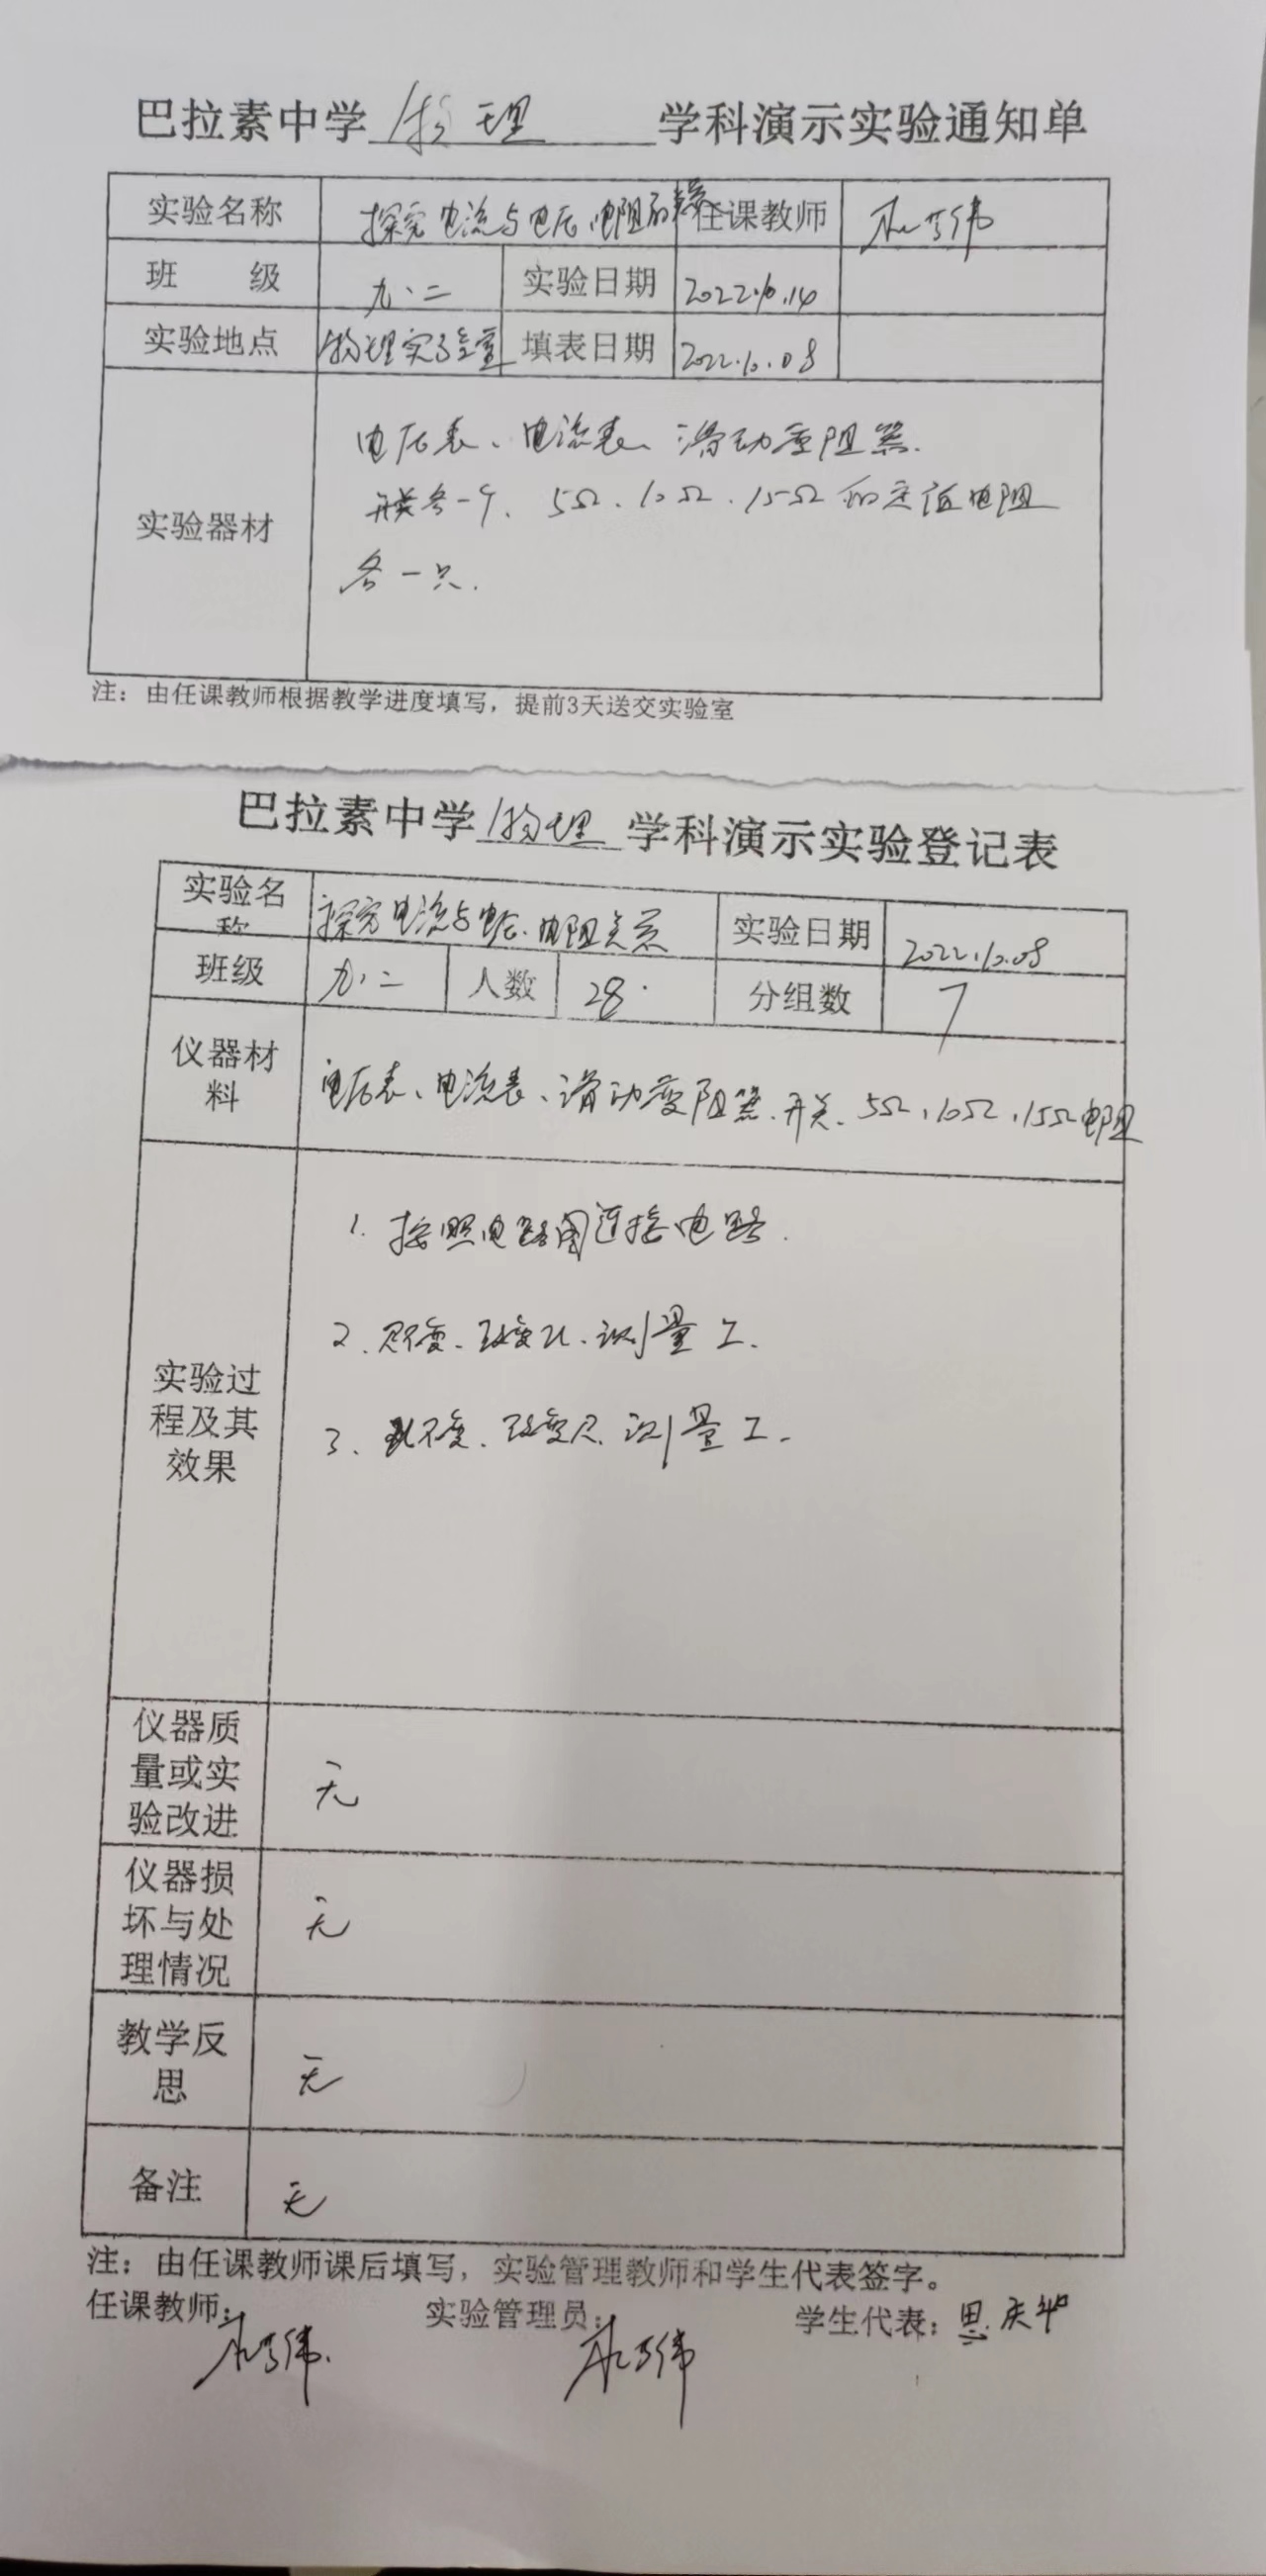 巴拉素中学 物理 学科演示实验通知单
实验名称 探究电流与电压、电阻的关系 任课教师
班 级 九、二 实验日期 2022.10.14
实验地点 物理实验室 填表日期 2022.10.08
实验器材
电压表、电流表、滑动变阻器.
开关各一个、5Ω、10Ω、15Ω的定值电阻
各一只.
注：由任课教师根据教学进度填写，提前3天送交实验室
巴拉素中学 物理 学科演示实验登记表
实验名称 探究电流与电压、电阻关系 实验日期 2022.10.08
班级 九、二 人数 28. 分组数 7
仪器材料 电压表、电流表、滑动变阻器、开关、5Ω、10Ω、15Ω电阻
实验过程及其效果
1. 按照电路图连接电路.
2、R不变、改变U、测量I.
3、U不变、改变R、测量I.
仪器质量或实验改进 无
仪器损坏与处理情况 无
教学反思 无
备注 无
注：由任课教师课后填写，实验管理教师和学生代表签字。
任课教师： 实验管理员： 学生代表：